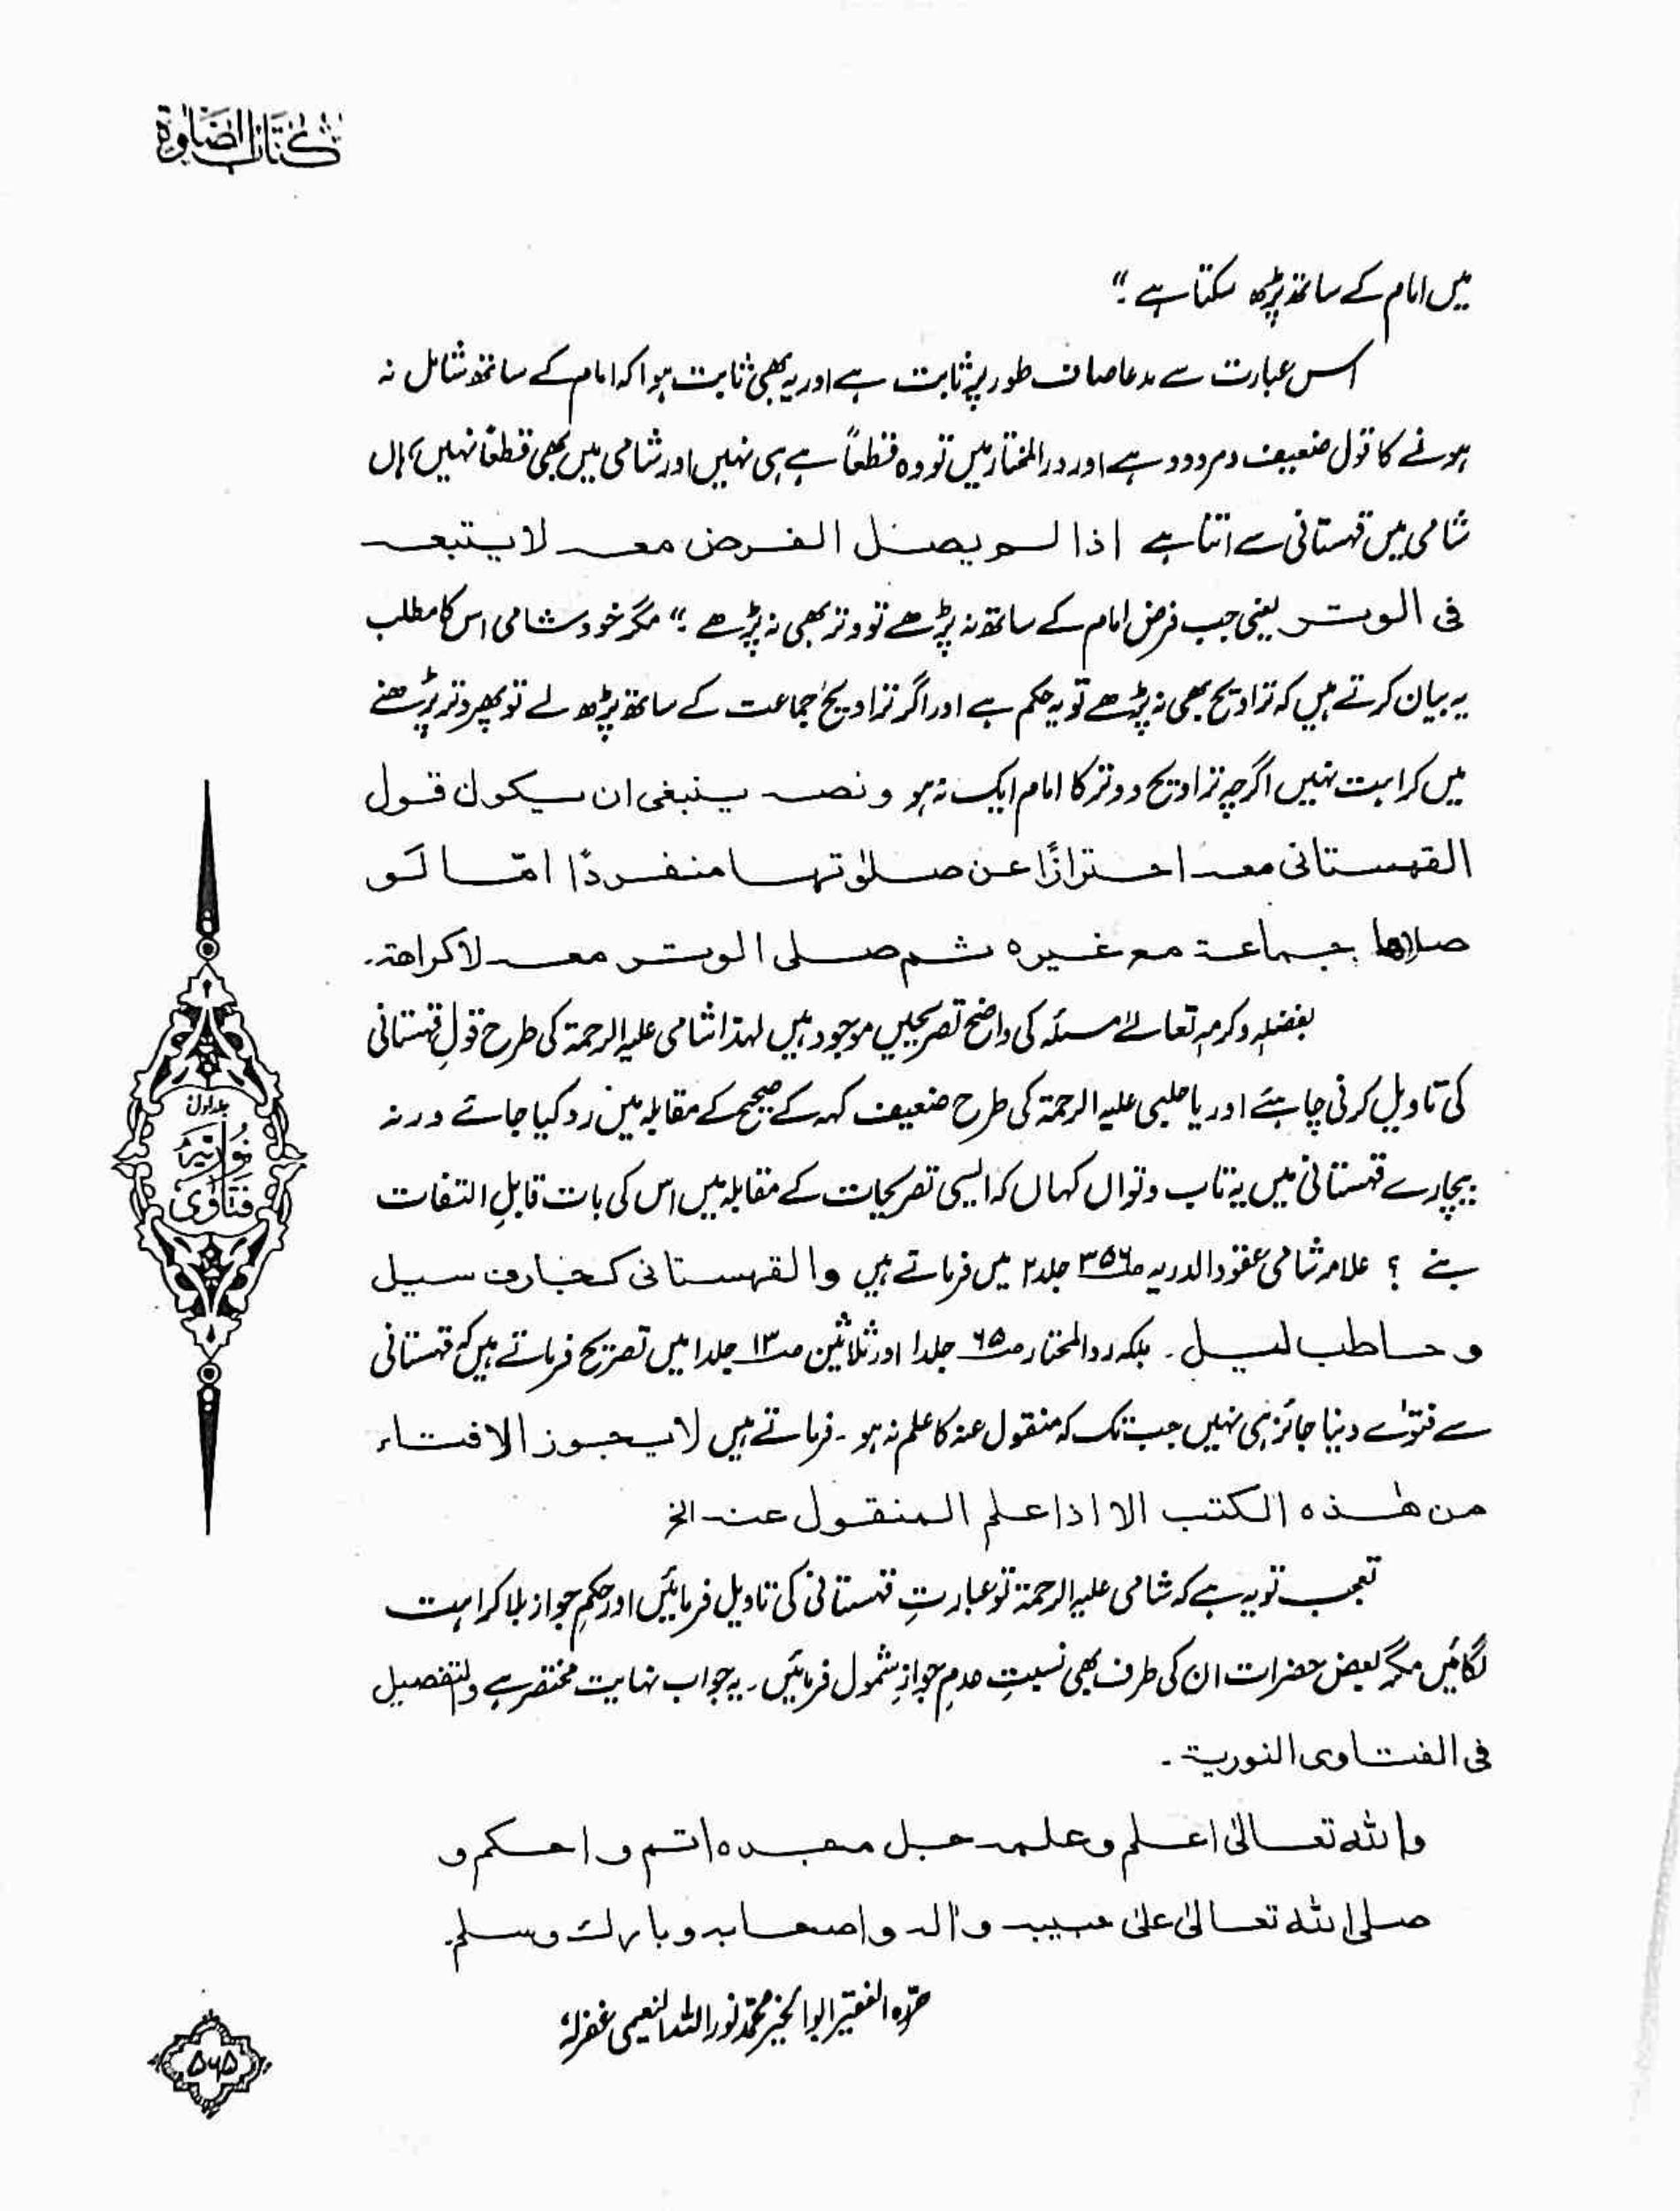 كتاب الصلوة
میں امام کے ساتھ پڑھ سکتا ہے ۔"
اس عبارت سے مدعا صاف طور پر ثابت ہے اور یہ بھی ثابت ہوا کہ امام کے ساتھ شامل نہ
ہونے کا قول ضعیف و مردود ہے اور درالمختار میں تو وہ قطعاً ہے ہی نہیں اور شامی میں بھی قطعاً نہیں، ہاں
شامی میں قہستانی سے اتنا ہے اذا لم یصل الفرض معہ لا یتبعہ
فی الوتر یعنی جب فرض امام کے ساتھ نہ پڑھے تو وتر بھی نہ پڑھے ۔" مگر خود شامی اس کا مطلب
یہ بیان کرتے ہیں کہ تراویح بھی نہ پڑھے تو یہ حکم ہے اور اگر تراویح جماعت کے ساتھ پڑھ لے تو پھر وتر پڑھنے
میں کراہت نہیں اگرچہ تراویح و وتر کا امام ایک نہ ہو و نصہ ینبغی ان یکون قول
القہستانی معہ احترازًا عن صلوٰتہا منفردًا امّا لَو
صلاھا جماعۃ مع غیرہ ثم صلی الوتر معہ لا کراھۃ۔
بفضلہٖ و کرمہٖ تعالےٰ مسئلہ کی واضح تصریحیں موجود ہیں لہذا شامی علیہ الرحمۃ کی طرح قولِ قہستانی
کی تاویل کرنی چاہئے اور یا حلبی علیہ الرحمۃ کی طرح ضعیف کہہ کے صحیح کے مقابلہ میں رد کیا جائے ورنہ
بیچارے قہستانی میں یہ تاب و تواں کہاں کہ ایسی تصریحات کے مقابلہ میں اس کی بات قابلِ التفات
بنے ؟ علامہ شامی عقود الدریہ ص۳۵۶ جلد۲ میں فرماتے ہیں والقہستانی کجارف سیل
و حاطب لیل ۔ بلکہ ردالمختار ص۶۵ جلد۱ اور ثلاثین ص۱۳ جلد۱ میں تصریح فرماتے ہیں کہ قہستانی
سے فتوٰے دینا جائز ہی نہیں جب تک کہ منقول عنہ کا علم نہ ہو ۔ فرماتے ہیں لا یجوز الافتاء
من ھذہ الکتب الا اذا علم المنقول عنہ الخ
تعجب تو یہ ہے کہ شامی علیہ الرحمۃ تو عبارتِ قہستانی کی تاویل فرمائیں اور حکمِ جواز بلا کراہت
لگائیں مگر بعض حضرات ان کی طرف بھی نسبتِ عدمِ جوازِ شمول فرمائیں ۔ یہ جواب نہایت مختصر ہے والتفصیل
فی الفتاوی النوریۃ ۔
واللہ تعالیٰ اعلم وعلمہ جل مجدہ اتم و احکم و
صلی اللہ تعالیٰ علیٰ حبیبہ واٰلہ واصحابہ وبارک وسلم۔
حرّرہ الفقیر ابوالخیر محمّد نور اللہ النعیمی غفرلہٗ
جلد اول
نوریہ
فتاوٰی
۵۶۵